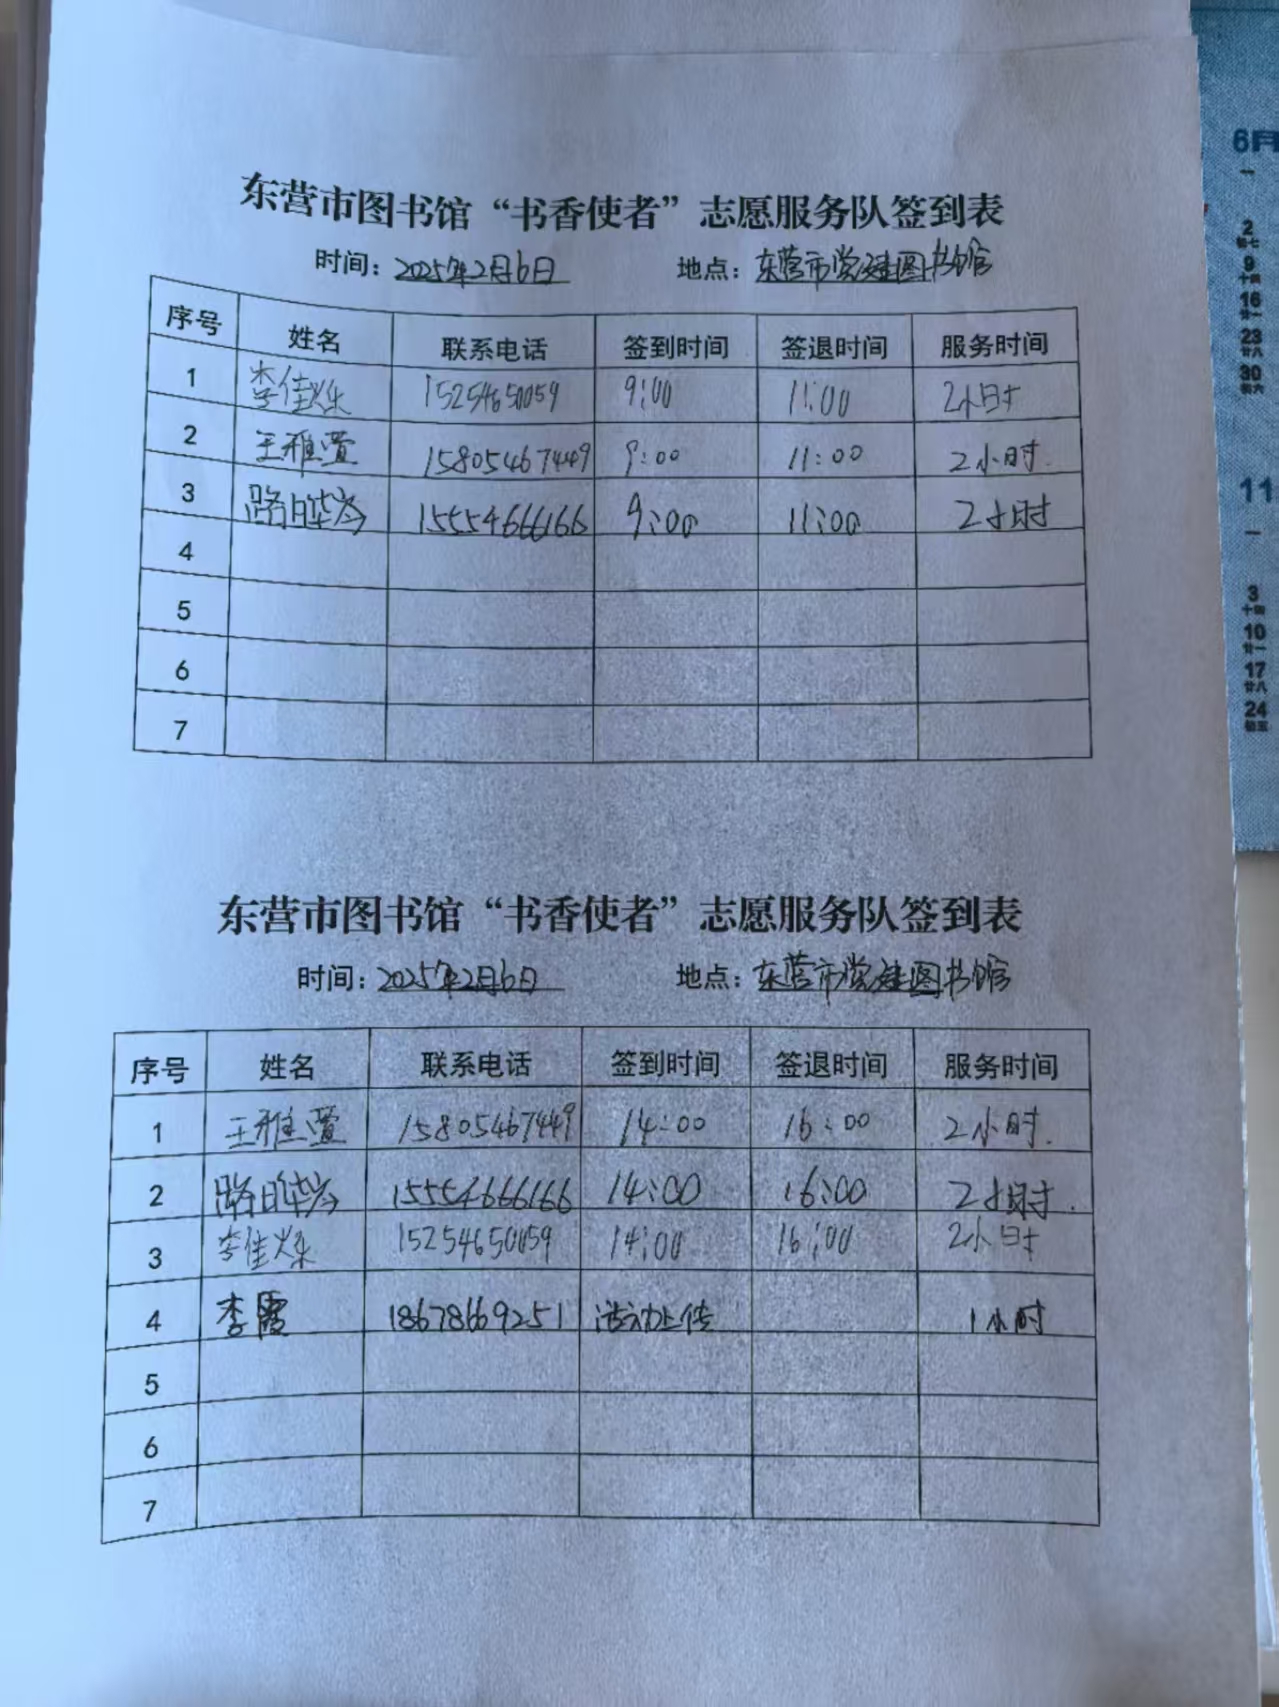 东营市图书馆“书香使者”志愿服务队签到表
时间：2025年2月6日 地点：东营市党建图书馆
序号 姓名 联系电话 签到时间 签退时间 服务时间
1 李佳烁 15254650059 9:00 11:00 2小时
2 王雅萱 15805467449 9:00 11:00 2小时.
3 路 15554666166 9:00 11:00 2小时
4
5
6
7
东营市图书馆“书香使者”志愿服务队签到表
时间：2025年2月6日 地点：东营市党建图书馆
序号 姓名 联系电话 签到时间 签退时间 服务时间
1 王雅萱 15805467449 14:00 16:00 2小时.
2 路 15554666166 14:00 16:00 2小时.
3 李佳烁 15254650059 14:00 16:00 2小时
4 李霞 18678669251 活动上传 1小时
5
6
7
6月
一
2
初七
9
十四
16
廿一
23
廿八
30
初六
11
一
3
十四
10
廿一
17
廿八
24
初五